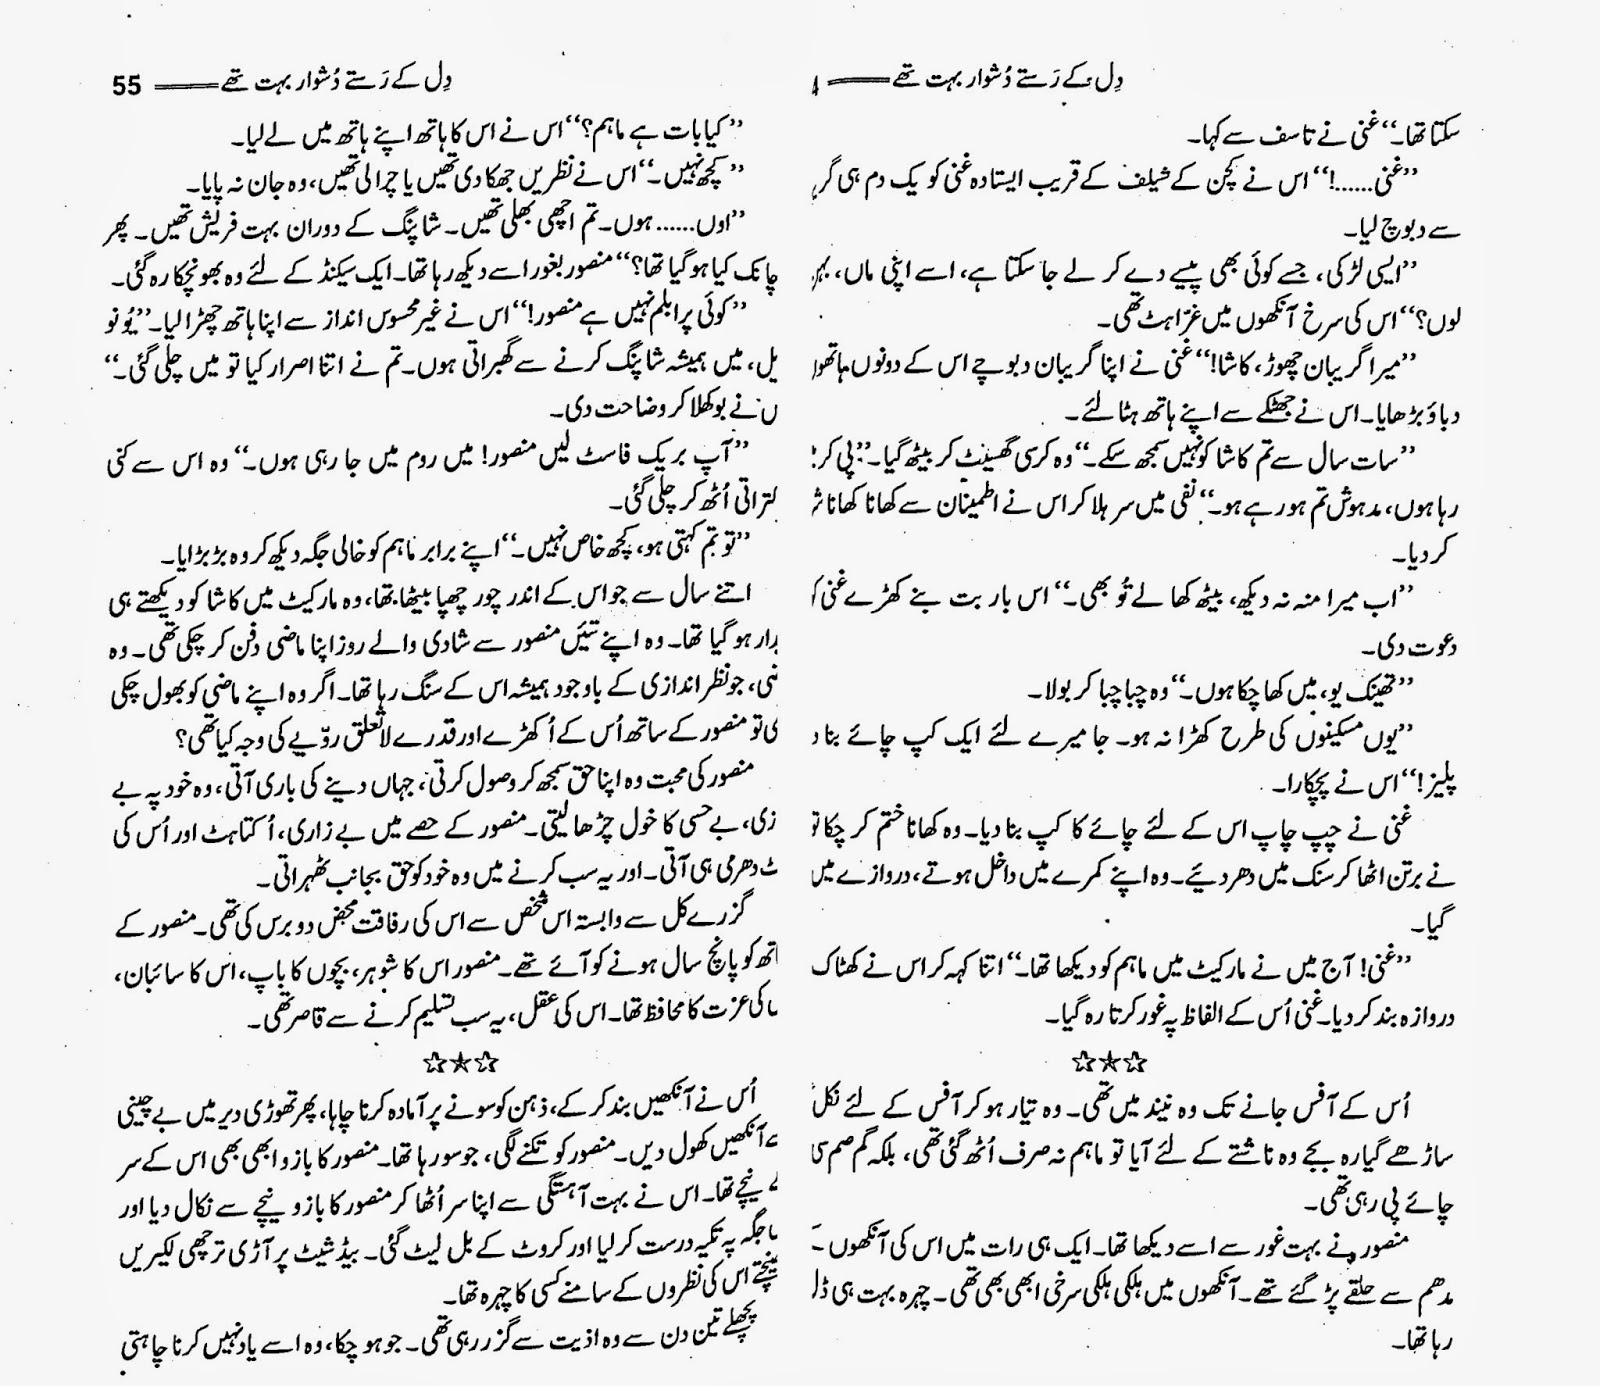 دِل کے رَستے دُشوار بہت تھے
سکتا تھا۔‘‘ غنی نے تاسف سے کہا۔
’’غنی......!‘‘ اس نے کچن کے شیلف کے قریب ایستادہ غنی کو یک دم ہی
سے دبوچ لیا۔
’’ایسی لڑکی، جسے کوئی بھی پیسے دے کر لے جا سکتا ہے، اسے اپنی ماں،
لوں؟‘‘ اس کی سرخ آنکھوں میں غرّاہٹ تھی۔
’’میرا گریبان چھوڑ، کاشا!‘‘ غنی نے اپنا گریبان دبوچے اس کے دونوں
دباؤ بڑھایا۔ اس نے جھٹکے سے اپنے ہاتھ ہٹا لئے۔
’’سات سال سے تم کاشا کو نہیں سمجھ سکے۔‘‘ وہ کرسی گھسیٹ کر بیٹھ گیا۔ ’’پی کر
رہا ہوں، مدہوش تم ہو رہے ہو۔‘‘ نفی میں سر ہلا کر اس نے اطمینان سے کھانا کھانا
کر دیا۔
’’اب میرا منہ نہ دیکھ، بیٹھ کھا لے تُو بھی۔‘‘ اس بار بت بنے کھڑے غنی
دعوت دی۔
’’تھینک یو، میں کھا چکا ہوں۔‘‘ وہ چبا چبا کر بولا۔
’’یوں مسکینوں کی طرح کھڑا نہ ہو۔ جا میرے لئے ایک کپ چائے بنا
پلیز!‘‘ اس نے پچکارا۔
غنی نے چپ چاپ اس کے لئے چائے کا کپ بنا دیا۔ وہ کھانا ختم کر چکا
نے برتن اٹھا کر سنک میں دھر دیئے۔ وہ اپنے کمرے میں داخل ہوتے، دروازے میں
گیا۔
’’غنی! آج میں نے مارکیٹ میں ماہم کو دیکھا تھا۔‘‘ اتنا کہہ کر اس نے کھٹاک
دروازہ بند کر دیا۔ غنی اُس کے الفاظ پہ غور کرتا رہ گیا۔
☆☆☆
اُس کے آفس جانے تک وہ نیند میں تھی۔ وہ تیار ہو کر آفس کے لئے نکل
ساڑھے گیارہ بجے وہ ناشتے کے لئے آیا تو ماہم نہ صرف اُٹھ گئی تھی، بلکہ گم صم
چائے پی رہی تھی۔
منصور نے بہت غور سے اسے دیکھا تھا۔ ایک ہی رات میں اس کی آنکھوں
مدھم سے حلقے پڑ گئے تھے۔ آنکھوں میں ہلکی ہلکی سرخی ابھی بھی تھی۔ چہرہ بہت ہی
رہا تھا۔
دِل کے رَستے دُشوار بہت تھے 55
’’کیا بات ہے ماہم؟‘‘ اس نے اس کا ہاتھ اپنے ہاتھ میں لے لیا۔
’’کچھ نہیں۔‘‘ اس نے نظریں جھکا دی تھیں یا چرا لی تھیں، وہ جان نہ پایا۔
’’اوں...... ہوں۔ تم اچھی بھلی تھیں۔ شاپنگ کے دوران بہت فریش تھیں۔ پھر
چانک کیا ہو گیا تھا؟‘‘ منصور بغور اسے دیکھ رہا تھا۔ ایک سیکنڈ کے لئے وہ بھونچکا رہ گئی۔
’’کوئی پرابلم نہیں ہے منصور!‘‘ اس نے غیر محسوس انداز سے اپنا ہاتھ چھڑا لیا۔ ’’یُو نو
یل، میں ہمیشہ شاپنگ کرنے سے گھبراتی ہوں۔ تم نے اتنا اصرار کیا تو میں چلی گئی۔‘‘
ں نے بوکھلا کر وضاحت دی۔
’’آپ بریک فاسٹ لیں منصور! میں روم میں جا رہی ہوں۔‘‘ وہ اس سے کنی
کتراتی اُٹھ کر چلی گئی۔
’’تو تم کہتی ہو، کچھ خاص نہیں۔‘‘ اپنے برابر ماہم کو خالی جگہ دیکھ کر وہ بڑبڑایا۔
اتنے سال سے جو اس کے اندر چور چھپا بیٹھا تھا، وہ مارکیٹ میں کاشا کو دیکھتے ہی
رار ہو گیا تھا۔ وہ اپنے تئیں منصور سے شادی والے روز اپنا ماضی دفن کر چکی تھی۔ وہ
ضی، جو نظر اندازی کے باوجود ہمیشہ اس کے سنگ رہا تھا۔ اگر وہ اپنے ماضی کو بھول چکی
ی تو منصور کے ساتھ اُس کے اُکھڑے اور قدرے لاتعلق روّیے کی وجہ کیا تھی؟
منصور کی محبت وہ اپنا حق سمجھ کر وصول کرتی، جہاں دینے کی باری آتی، وہ خود پہ بے
زی، بے حسی کا خول چڑھا لیتی۔ منصور کے حصے میں بے زاری، اُکتاہٹ اور اُس کی
ٹ دھرمی ہی آتی۔ اور یہ سب کرنے میں وہ خود کو حق بجانب ٹھہراتی۔
گزرے کل سے وابستہ اس شخص سے اس کی رفاقت محض دو برس کی تھی۔ منصور کے
اتھ کو پانچ سال ہونے کو آئے تھے۔ منصور اس کا شوہر، بچوں کا باپ، اس کا سائبان،
کی عزت کا محافظ تھا۔ اس کی عقل، یہ سب تسلیم کرنے سے قاصر تھی۔
☆☆☆
اُس نے آنکھیں بند کر کے، ذہن کو سونے پر آمادہ کرنا چاہا، پھر تھوڑی دیر میں بے چینی
ے آنکھیں کھول دیں۔ منصور کو تکنے لگی، جو سو رہا تھا۔ منصور کا بازو ابھی بھی اس کے سر
ے نیچے تھا۔ اس نے بہت آہستگی سے اپنا سر اُٹھا کر منصور کا بازو نیچے سے نکال دیا اور
جگہ پہ تکیہ درست کر لیا اور کروٹ کے بل لیٹ گئی۔ بیڈ شیٹ پر آڑی ترچھی لکیریں
ھینچتے اس کی نظروں کے سامنے کسی کا چہرہ تھا۔
پچھلے تین دن سے وہ اذیت سے گزر رہی تھی۔ جو ہو چکا، وہ اسے یاد نہیں کرنا چاہتی